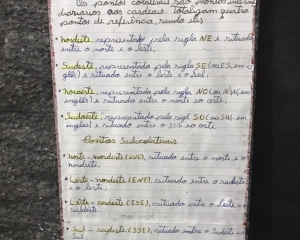 Os pontos colaterais são pontos inter
diários aos cardeais. Totalizam quatro
pontos de referência, sendo eles:
• nordeste, representado pela sigla NE e situado
entre o norte e o leste;
• Sudeste, representado pela sigla SE (ou ES, em
glês) e situado entre o leste e o Sul;
• noroeste, representado pela sigla NO (ou NW, em
inglês) e situado entre o norte e o oeste
• Sudoeste, representado pela sigla SO (ou SW, em
inglês) e situado entre o sul e o oeste
Pontos Subcolaterais
• norte-nordeste (NNE), situado entre o norte e o
nordeste.
• Leste-nordeste (ENE), situado entre o
e o leste;
• Leste-sudeste (ESE), situado entre o leste e
sudeste
• Sul-sudeste (SSE), situado entre o